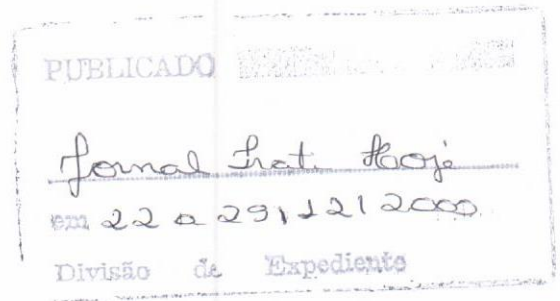 PUBLICADO
Jornal Trat. Hoje
em 22 a 29/12/2000
Divisão de Expediente